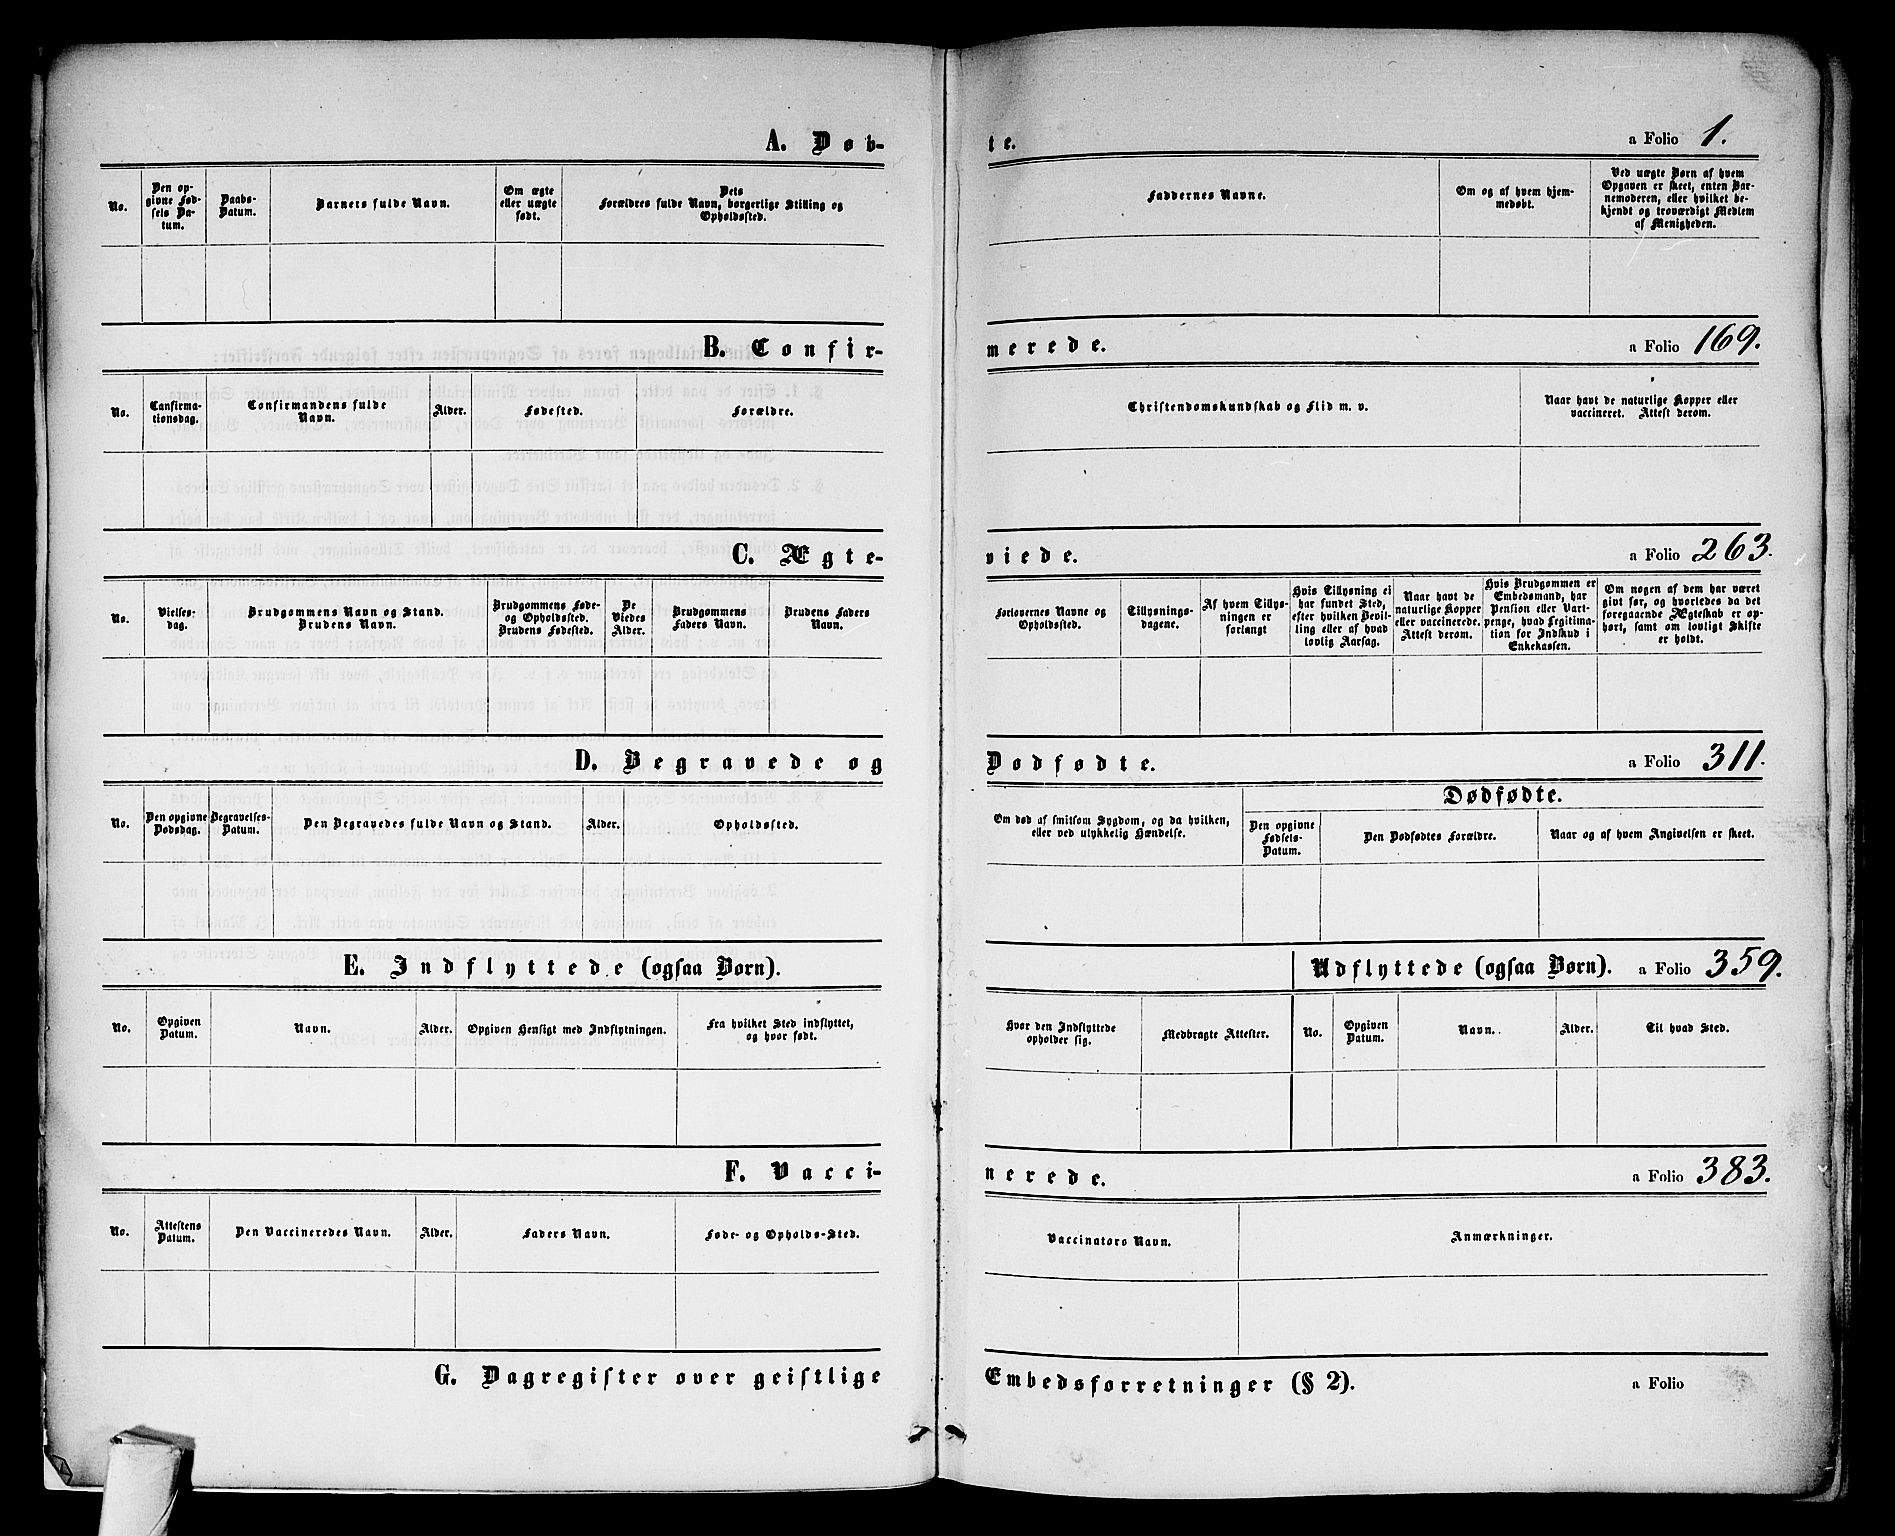 A. Døb-
te. a Folio 1.
No.
Den op-
givne Fød-
sels Da-
tum.
Daabs-
Datum.
Barnets fulde Navn.
Om ægte
eller uægte
født.
Dets
Forældres fulde Navn, borgerlige Stilling og
Opholdssted.
Faddernes Navne.
Om og af hvem hjem-
medøbt.
Ved uægte Børn af hvem
Opgaven er skeet, enten Bar-
nemoderen, eller hvilket be-
kjendt og troværdigt Medlem
af Menigheden.
B. Confir-
merede. a Folio 169.
No.
Confirma-
tionsdag.
Confirmandens fulde
Navn.
Alder.
Fødested.
Forældre.
Christendomskundskab og Flid m. v.
Naar havt de naturlige Kopper eller
vaccineret. Attest derom.
C. Ægte-
viede. a Folio 263.
No.
Vielses-
dag.
Brudgommens Navn og Stand.
Brudens Navn.
Brudgommens Føde-
og Opholdssted.
Brudens Fødested.
De
Viedes
Alder.
Brudgommens
Faders Navn.
Brudens Faders
Navn.
Forlovernes Navne og
Opholdssted.
Tillysnings-
dagene.
Af hvem Tillys-
ningen er
forlangt
Hvis Tillysning ei
har fundet Sted,
efter hvilken Bevil-
ling eller af hvad
lovlig Aarsag.
Naar havt de
naturlige Kopper
eller vaccinerede.
Attest derom.
Hvis Brudgommen er
Embedsmand, har
Pension eller Vart-
penge, hvad Legitima-
tion for Indskud i
Enkekassen.
Om nogen af dem har været
givt før, og hvorledes da det
foregaaende Ægteskab er op-
hørt, samt om lovligt Skifte
er holdt.
D. Begravede og
Dødfødte. a Folio 311.
No.
Den opgivne
Dødsdag.
Begravelses-
Datum.
Den Begravedes fulde Navn og Stand.
Alder.
Opholdssted.
Om død af smitsom Sygdom, og da hvilken,
eller ved ulykkelig Hændelse.
Dødfødte.
Den opgivne
Fødsels-
Datum.
Den Dødfødtes Forældre.
Naar og af hvem Angivelsen er skeet.
E. Indflyttede (ogsaa Børn).
Udflyttede (ogsaa Børn). a Folio 359.
No.
Opgiven
Datum.
Navn.
Alder.
Opgiven Hensigt med Indflytningen.
Fra hvilket Sted indflyttet,
og hvor født.
Hvor den Indflyttede
opholder sig.
Medbragte Attester.
No.
Opgiven
Datum.
Navn.
Alder.
Til hvad Sted.
F. Vacci-
nerede. a Folio 383.
No.
Attestens
Datum.
Den Vaccineredes Navn.
Alder.
Faders Navn.
Føde- og Opholds-Sted.
Vaccinators Navn.
Anmærkninger.
G. Dagregister over geistlige
Embedsforretninger (§ 2). a Folio